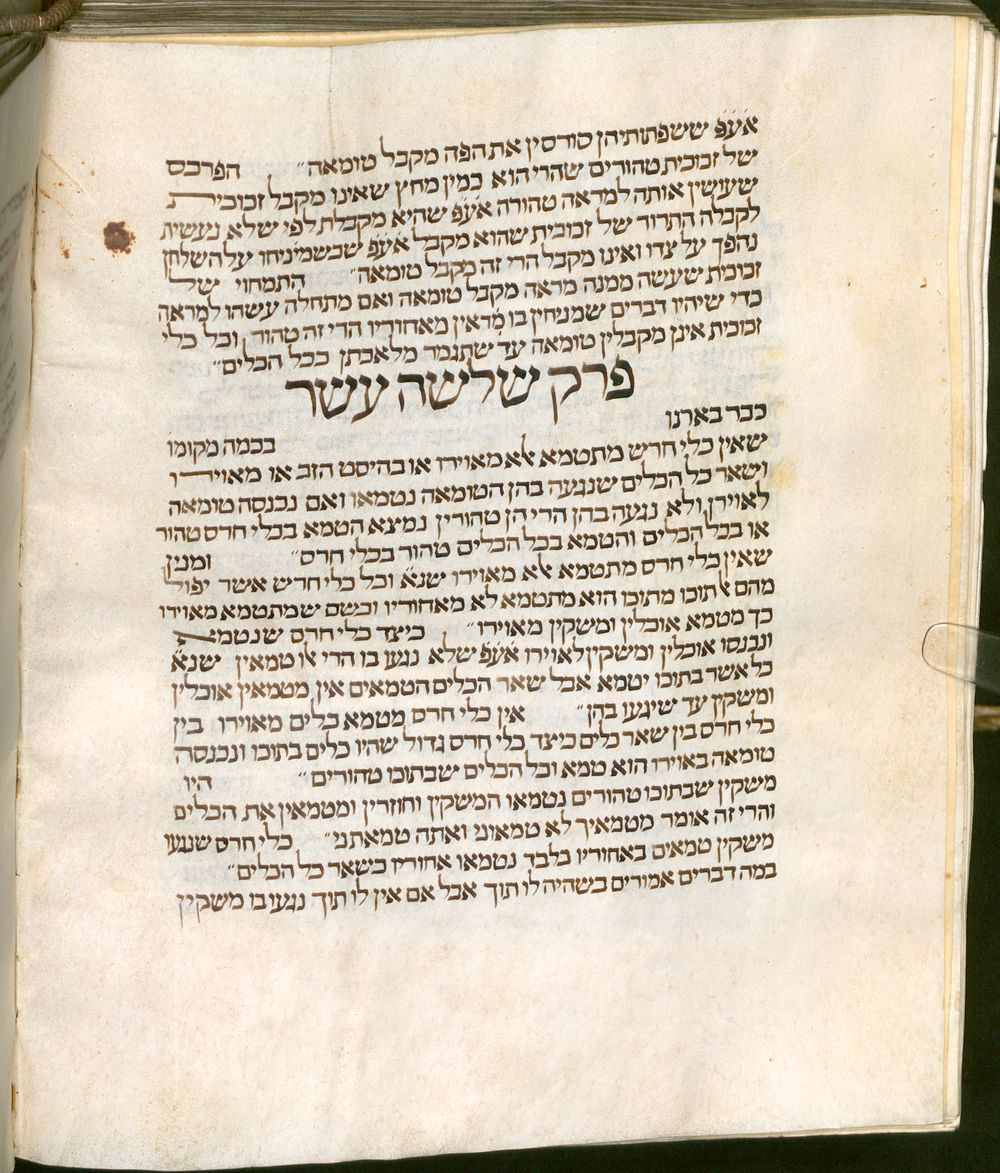 אעפ ששפתותיהן סודסין את הפה מקבל טומאה״ הפרכס
של זכוכית טהורים שהרי הוא כמין מחץ שאינו מקבל זכוכית
שעושין אותה למראה טהורה אעפ שהיא מקבלת לפי שלא נעשית
לקבלה התרוד של זכוכית שהוא מקבל אעפ שכשמניחו על השלחן
נהפך על צדו ואינו מקבל הרי זה מקבל טומאה״ התמחוי של
זכוכית שעשה ממנה מראה מקבל טומאה ואם מתחלה עשהו למראה
כדי שיהיו דברים שמניחין בו נראין מאחוריו הרי זה טהור וכל כלי
זכוכית אינן מקבלין טומאה עד שתגמר מלאכתן ככל הכלים״
פרק שלשה עשר
כבר בארנו
בכמה מקומו
שאין כלי חרש מתטמא אלא מאוירו או בהיסט הזב או מאוירו
ושאר כל הכלים שנגעה בהן הטומאה נטמאו ואם נכנסה טומאה
לאוירן ולא נגעה בהן הרי הן טהורין נמצא הטמא בכלי חרס טהור
או בכל הכלים והטמא בכל הכלים טהור בכלי חרס״ ומנין
שאין כלי חרס מתטמא אלא מאוירו שנא וכל כלי חרש אשר יפול
מהם אל תוכו מתוכו הוא מתטמא לא מאחוריו וכשם שמתטמא מאוירו
כך מטמא אוכלין ומשקין מאוירו״ כיצד כלי חרס שנטמא
ונכנסו אוכלין ומשקין לאוירו אעפ שלא נגעו בו הרי אלו טמאין שנא
כל אשר בתוכו יטמא אבל שאר הכלים הטמאים אין מטמאין אוכלין
ומשקין עד שיגעו בהן״ אין כלי חרס מטמא כלים מאוירו בין
כלי חרס בין שאר כלים כיצד כלי חרס גדול שהיו כלים בתוכו ונכנסה
טומאה באוירו הוא טמא וכל הכלים שבתוכו טהורים״ היו
משקין שבתוכו טהורים נטמאו המשקין וחוזרין ומטמאין את הכלים
והרי זה אומר מטמאיך לא טמאוני ואתה טמאתני״ כלי חרס שנגעו
משקין טמאים באחוריו בלבד נטמאו אחוריו כשאר כל הכלים״
במה דברים אמורים בשהיה לו תוך אבל אם אין לו תוך נגעו בו משקין